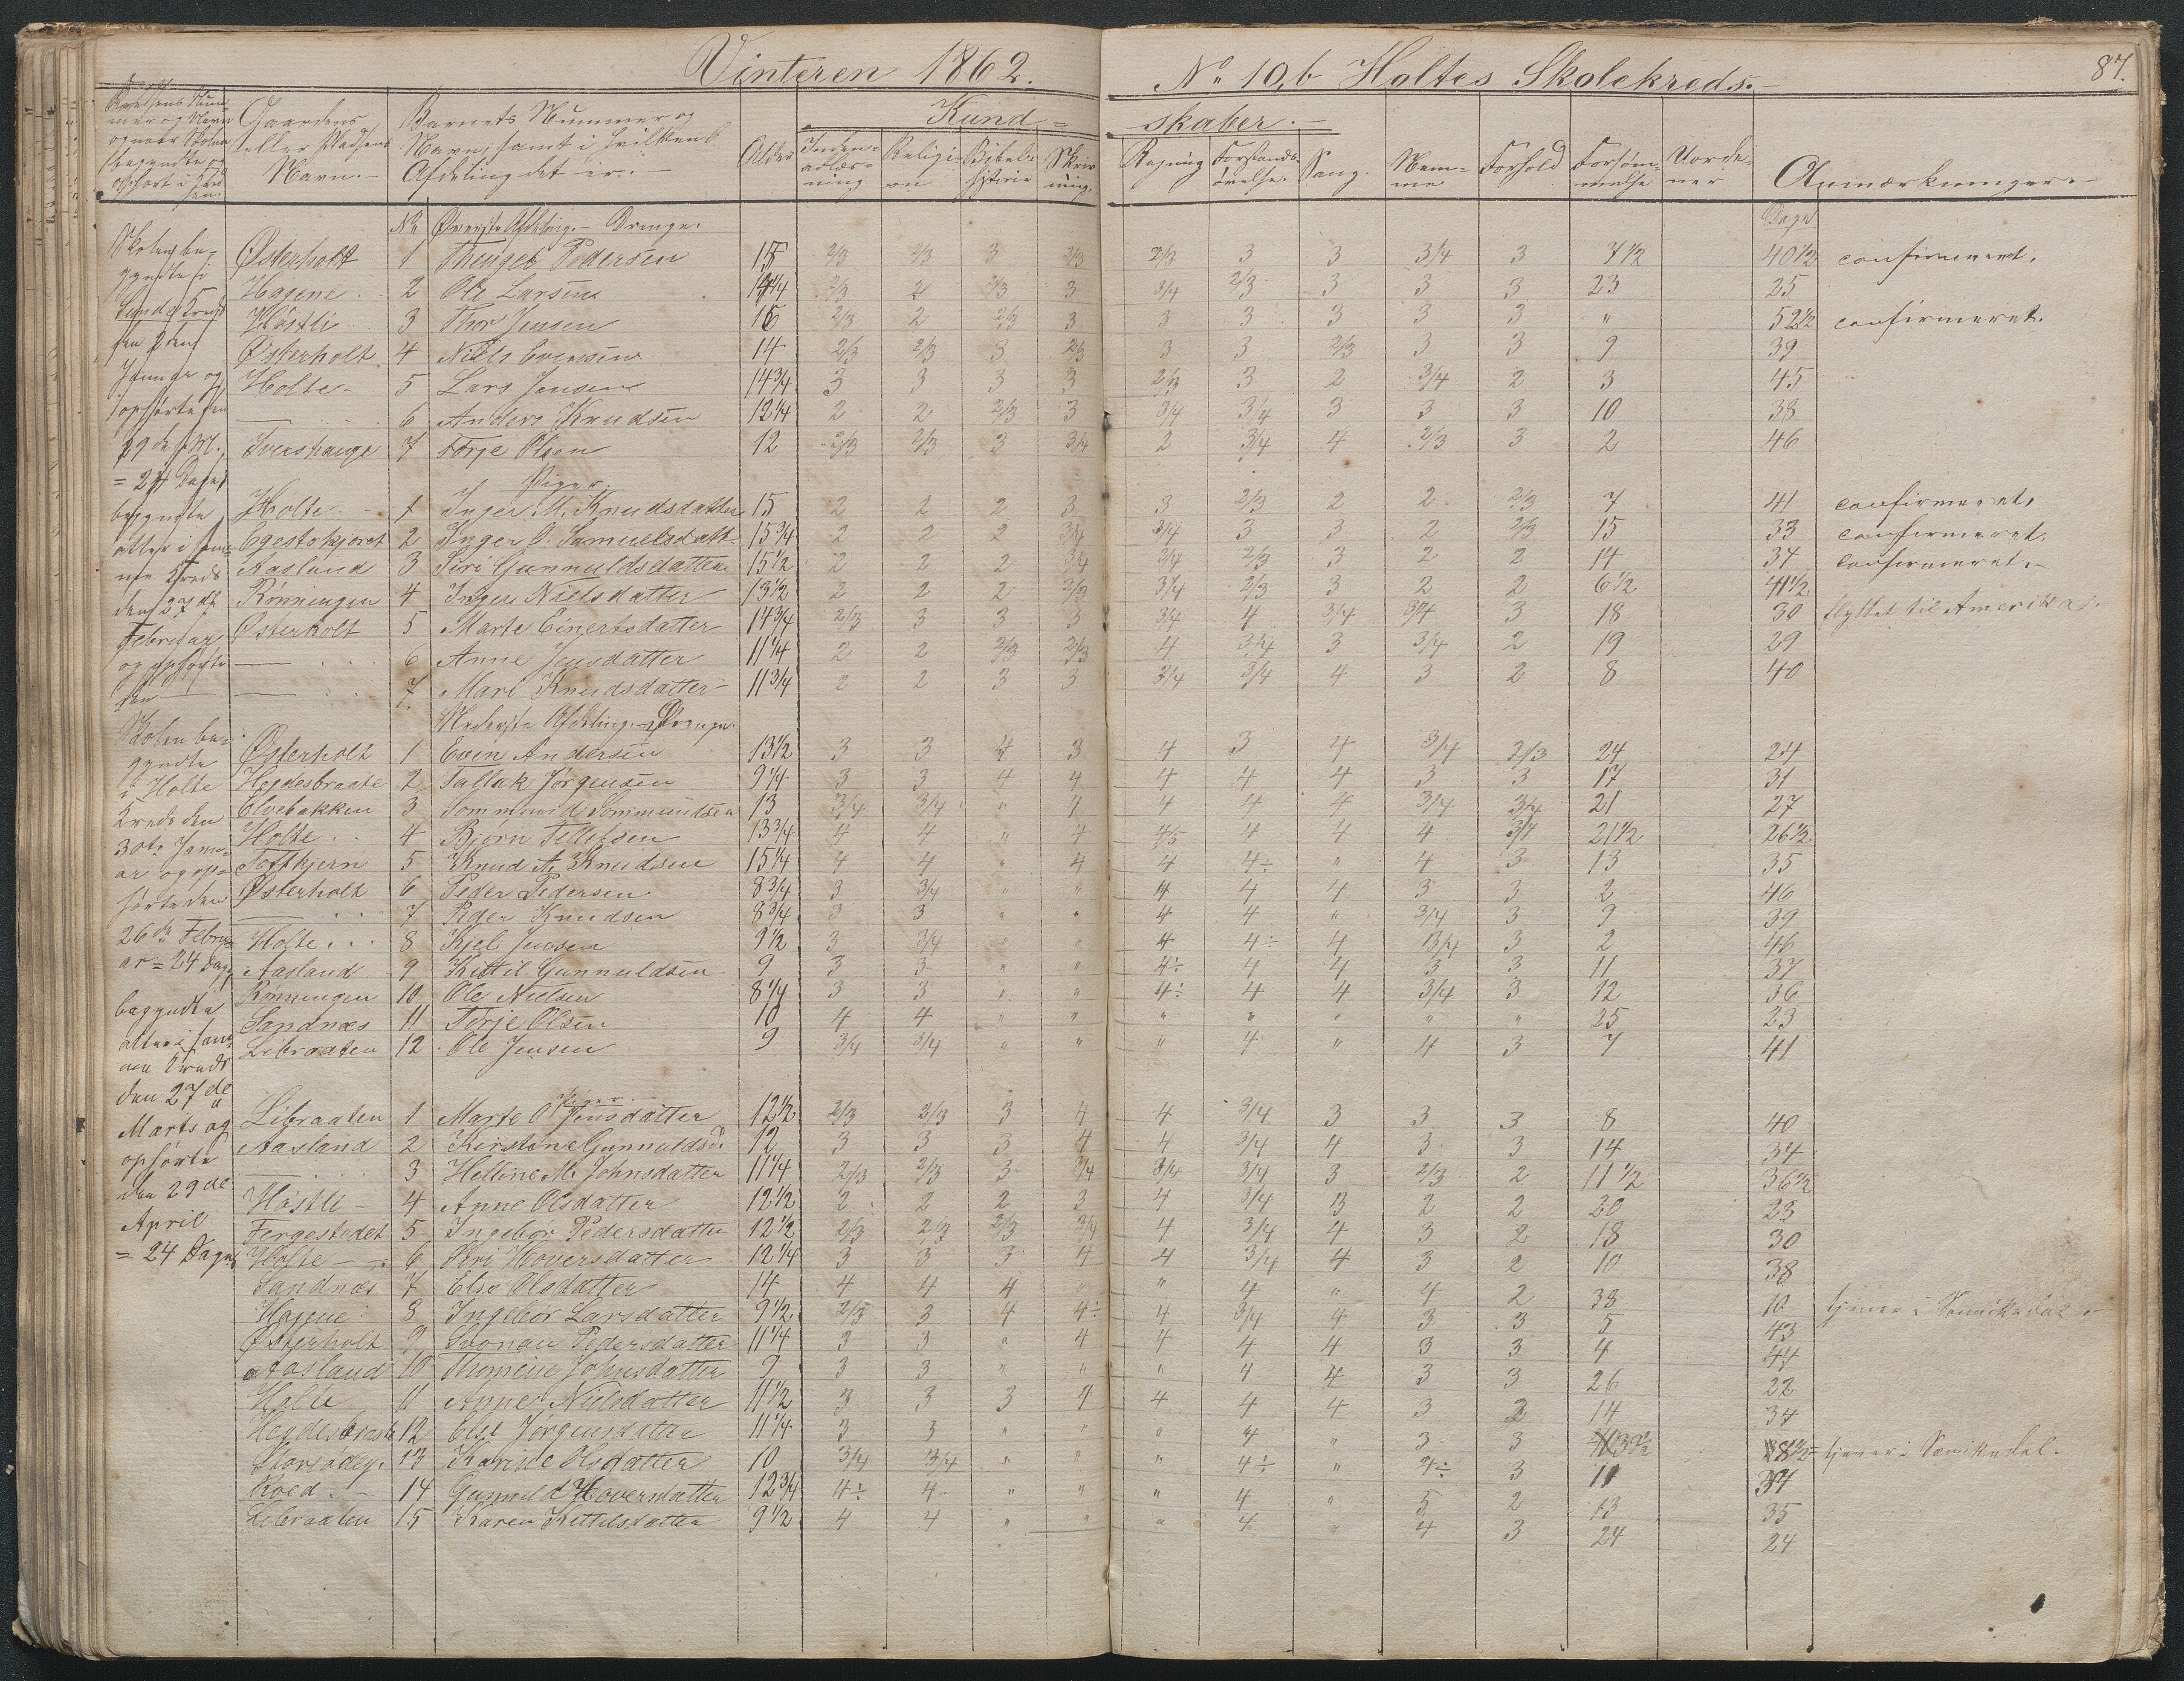 Vinteren 1862.
No 10,b Holtes Skolekreds.
87.
Gaardens eller Pladsens Navn.
Barnets Nummer og Navn, samt i hvilken Afdeling det er.
Alder
Kundskaber.
Indenadlæsning Religion Bibelhistorie Skrivning Regning Forstandsøvelse Sang Nemme Forhold Forsømmelse Uordener Anmærkninger.
No Øverste Afdeling. Drenge. Dage
Østerholt 1 Pedersen 15 2/3 2/3 3 2/3 2/3 3 3 3/4 3 7 1/2 40 1/2 confirmeret.
Hagene 2 Ole Larsen 14 1/4 2/3 2 2/3 3 3/4 2/3 3 3 3 23 25
Høstli 3 Thor Jensen 16 2/3 2 2/3 3 3 3 3 3 3 " 52 1/2 confirmeret.
Østerholt 4 Niels Evensen 14 2/3 2/3 3 2/3 3 3 2/3 3 3 9 39
Holte 5 Lars Jensen 14 3/4 3 3 3 3 2/3 3 2 3/4 2 3 45
— 6 Anders Knudsen 12 1/4 2 2 2/3 3 3/4 3/4 3 3 3 10 38
7 Torje Olsen 12 2/3 2/3 3 3/4 2 3/4 4 2/3 3 2 46
Piger.
Holte 1 Inger M. Knudsdatter 15 2 2 2 3 3 2/3 2 2 2/3 7 41 confirmeret.
2 Inger O. Samuelsdatt. 15 3/4 2 2 2 3/4 3/4 3 3 2 2/3 15 33 confirmeret.
Aasland 3 Siri Gunnuldsdatter 15 1/2 2 2 2 3/4 3/4 2/3 3 2 2 14 34 confirmeret.
Rønningen 4 Inger Nielsdatter 13 1/2 2 2 2 2/3 3/4 2/3 3 2 2 6 1/2 41 1/2
Østerholt 5 Marte Einertsdatter 14 3/4 2/3 3 3 3 3/4 4 3/4 3/4 3 18 30 flyttet til Amerika.
— 6 Anne Jensdatter 11 1/4 2 2 2/3 2/3 4 3/4 3 3/4 2 19 29
— 7 Mari Knudsdatter 11 3/4 2 2 3 3 3/4 3/4 4 3 2 8 40
Nederste Afdeling. Drenge.
Østerholt 1 Even Andersen 13 1/2 3 3 4 3 4 3 4 3/4 2/3 24 24
Hegdesbraate 2 Tallak Jørgensen 9 1/4 3 3 4 4 4 4 4 3 3 17 31
Elvebakken 3 Sommund Sommundsen 13 3/4 3/4 " 4 4 4 4 3/4 3/4 21 27
Holte 4 Bjørn Tellefsen 13 3/4 4 4 " 4 4/5 4 4 4 3/4 21 1/2 26 1/2
5 Knud A. Knudsen 15 1/4 4 4 " 4 4 4÷ " 4 3 13 35
Østerholt 6 Peder Pedersen 8 3/4 3 3/4 " " 4 4 4 3 3 2 46
— 7 Peder Knudsen 8 3/4 3 3 " " 4 4 " 3/4 3 9 39
Holte 8 Kjel Jensen 9 1/2 3 3/4 " " 4 4÷ 4 3/4 3 2 46
Aasland 9 Kittil Gunnuldsen 9 3 3 " " 4÷ 4 4 3 3 11 37
Rønningen 10 Ole Nielsen 8 1/4 3 3 " " 4÷ 4 4 3/4 3 12 36
Sandnæs 11 Torje Olsen 10 4 4 " " " " " " " 25 23
Libraaten 12 Ole Jensen 9 3/4 3/4 " " " 4 " 4 3 7 41
Piger.
Libraaten 1 Marte O. Jensdatter 12 1/2 2/3 2/3 3 4 4 3/4 3 3 3 8 40
Aasland 2 Kirstine Gunnuldsd. 12 3 3 3 4 4 3/4 4 3 3 14 34
— 3 Helline M. Johnsdatter 11 1/4 2/3 2/3 3 3/4 3/4 3/4 3 2/3 2 11 1/2 36 1/2
Høstli 4 Anne Olsdatter 12 1/2 2 2 2 3 4 3/4 3 2 2 20 23
Fergestedet 5 Ingebor Pedersdatter 12 1/2 2/3 2/3 2/3 3/4 4 3/4 4 3 2 18 30
Holte 6 Siri Hoversdatter 12 1/4 3 3 3 4 4 3/4 4 3 2 10 38
Sandnæs 7 Else Olsdatter 14 4 4 4 " " 4 " 4 2 38 10 tjener i
Hagene 8 Ingebor Larsdatter 9 1/2 2/3 3 4 4÷ 4 3/4 4 3 3 5 43
Østerholt 9 Pedersdatter 11 1/4 3 3 " 4 4 4 4 3 3 4 44
Aasland 10 Thomine Johnsdatter 9 3 3 " " " 4 4 3 3 26 22
Holte 11 Anne Nielsdatter 11 1/2 3 3 3 4 4 4 4 3 3 14 34
Hegdesbraate 12 Else Jørgensdatter 11 1/4 3 3 " " " 4 " 3 3 39 1/2 8 1/2 tjener i
13 Karine Olsdatter 10 3/4 3/4 " " " 4÷ " 4÷ 3 11 37
Roed 14 Gunnild Hoversdatter 12 3/4 4÷ 4 " " " 4 " 5 2 13 35
Libraaten 15 Karen Kittelsdatter 9 1/2 4 4 " " " 4 " 4 3 24 24
Skolen begyndte i
Lunds Kreds
den 2den
Januar og
ophørte den
29de f. M.
= 24 Dage
begyndte
atter i samme Kreds
den 27de
Februar
og ophørte
den
Skolen begyndte
i Holte
Kreds den
30te Januar og ophørte den
26de Februar = 24 Dage
begyndte
atter i samme Kreds
den 27de
Marts og
ophørte
den 29de
April
= 24 Dage